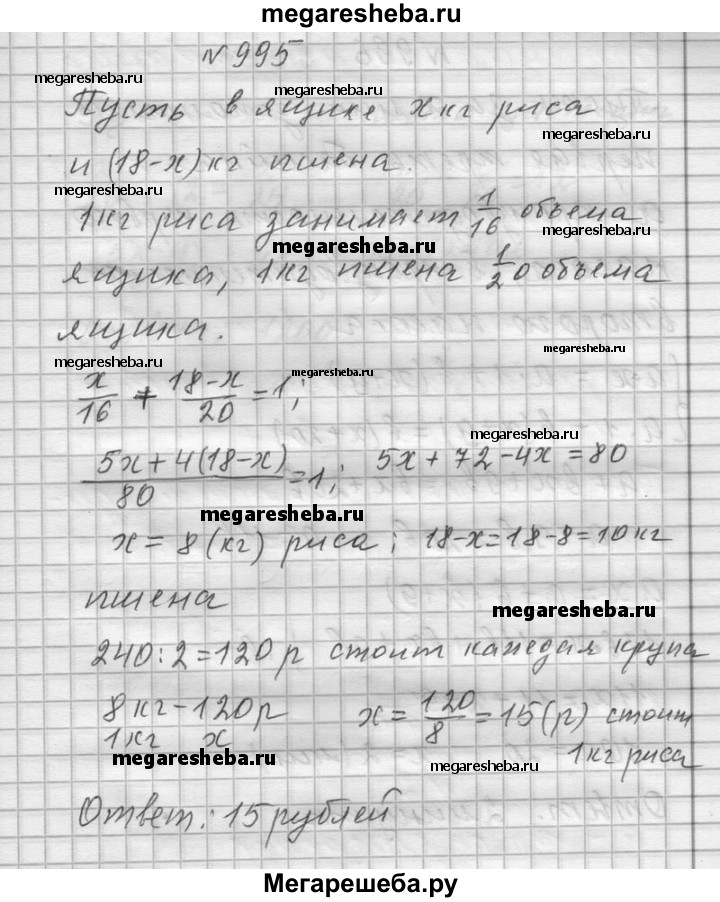 megaresheba.ru
№ 995
megaresheba.ru
megaresheba.ru
Пусть в ящике x кг риса
megaresheba.ru
и (18-x) кг пшена.
megaresheba.ru
1 кг риса занимает 1/16 объема
megaresheba.ru
megaresheba.ru
ящика, 1 кг пшена 1/20 объема
ящика.
megaresheba.ru
megaresheba.ru
megaresheba.ru
x/16 + 18-x/20 = 1;
megaresheba.ru
5x+4(18-x)/80 = 1; 5x + 72 - 4x = 80
megaresheba.ru
x = 8 (кг) риса; 18-x=18-8=10 кг
пшена
megaresheba.ru
240:2=120 р стоит каждая крупа
8 кг - 120 р x = 120/8 = 15 (р) стоит
1 кг x 1 кг риса
megaresheba.ru
megaresheba.ru
Ответ: 15 рублей
Мегарешеба.ру